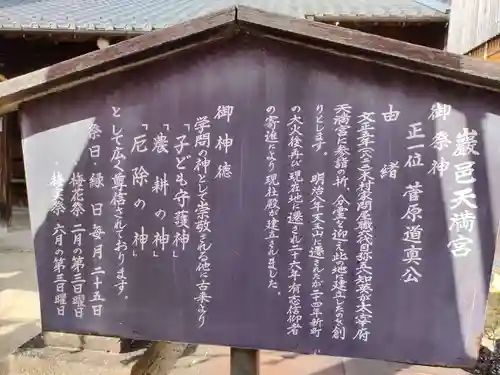 巌邑天満宮
御祭神
正一位 菅原道真公
由緒
文正年六二木村家問屋職 弥太知英が太宰府
天満宮に参詣の折、分霊を迎え此の地に建立したのを創
りとします。 明治八年天王山に遷されたが二十四年新町
の大火後再び現在地に遷され二十六年有志信仰者
の寄進により現社殿が建立されました。
御神徳
学問の神として崇敬される他に古来より
「子ども守護神」
「農耕の神」
「厄除の神」
として広く尊信されております。
祭日 縁日 毎月二十五日
梅花祭 二月の第三日曜日
梅天祭 六月の第三日曜日